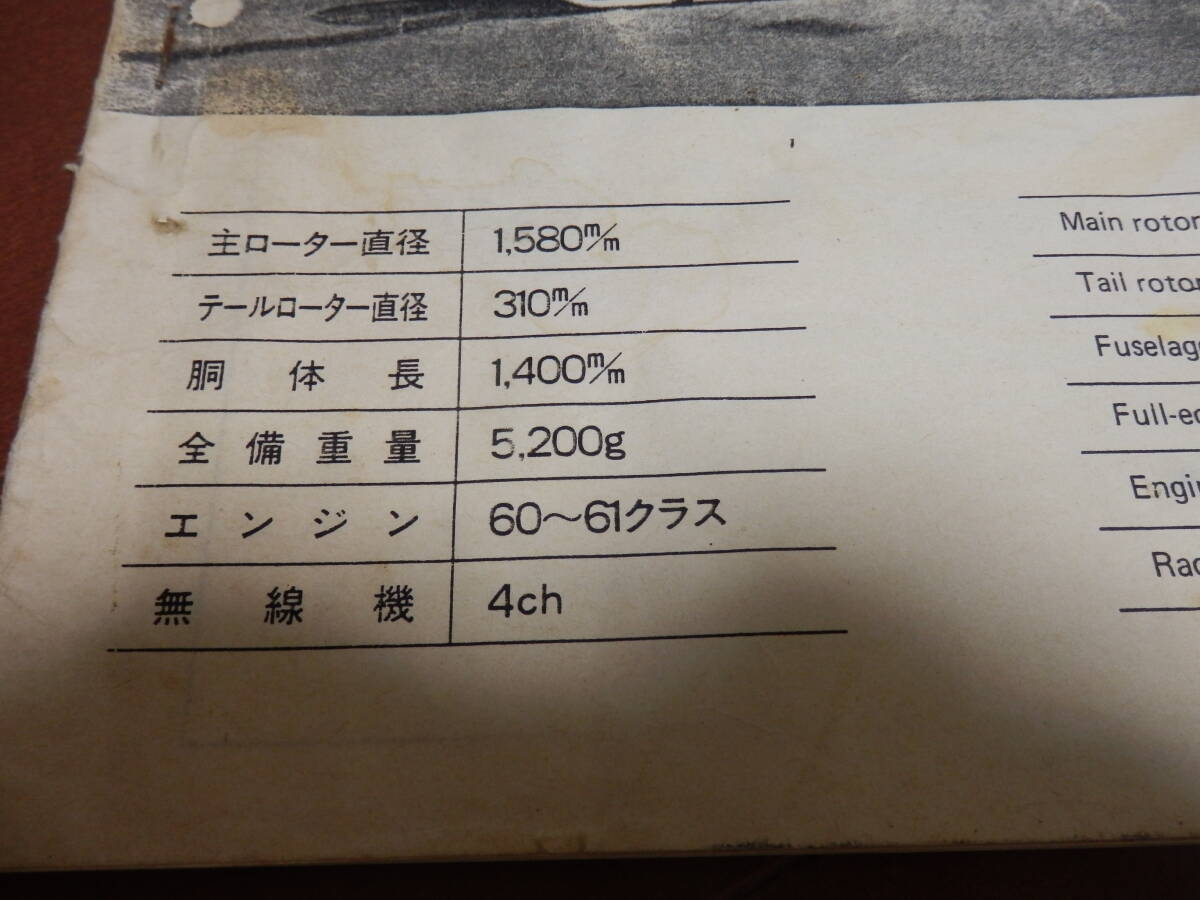 主ローター直径 1,580m/m
テールローター直径 310m/m
胴体長 1,400m/m
全備重量 5,200g
エンジン 60〜61クラス
無線機 4ch
Main rotor
Tail rotor
Fuselage
Full-eq
Engin
Rad